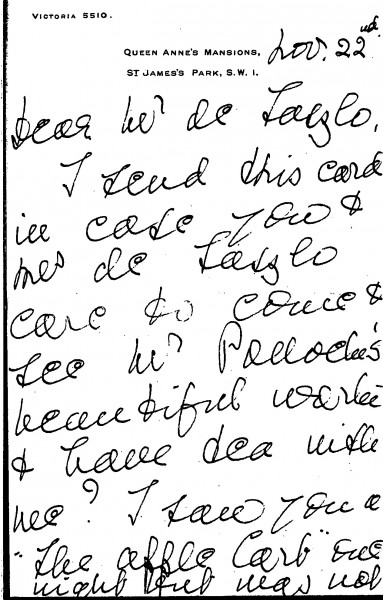 VICTORIA 5510.
QUEEN ANNE'S MANSIONS,
ST JAMES'S PARK, S.W. 1.
Nov. 22nd
Dear Mr de Laszlo,
I send this card
in case you &
Mrs de Laszlo
care to come &
see Mr Pollock's
beautiful work
& have tea with
me? I saw you a
"The Apple Cart" one
night but was not